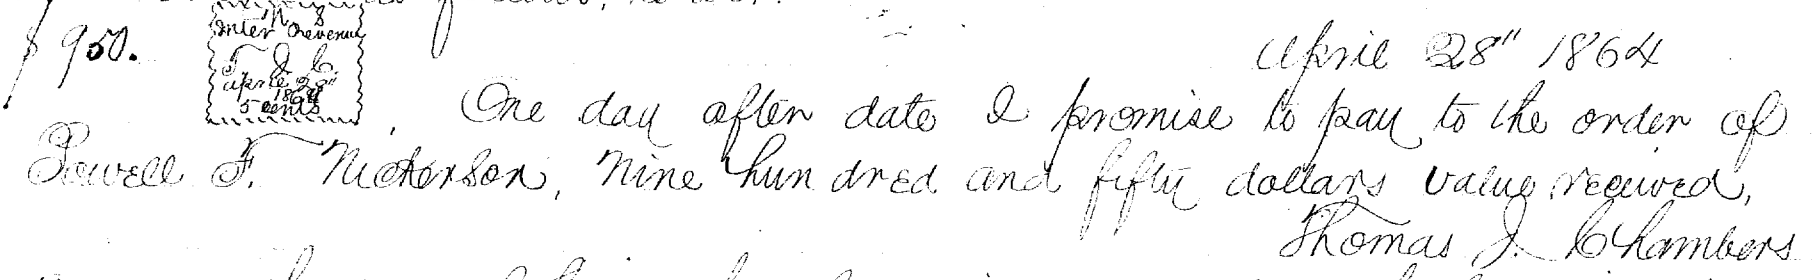 $950.
Inter Revenue
T J C
April 28"
1864
5 cents
April 28" 1864
One day after date I promise to pay to the order of
Powell F. Nickerson, Nine hundred and fifty dollars value received,
Thomas J. Chambers